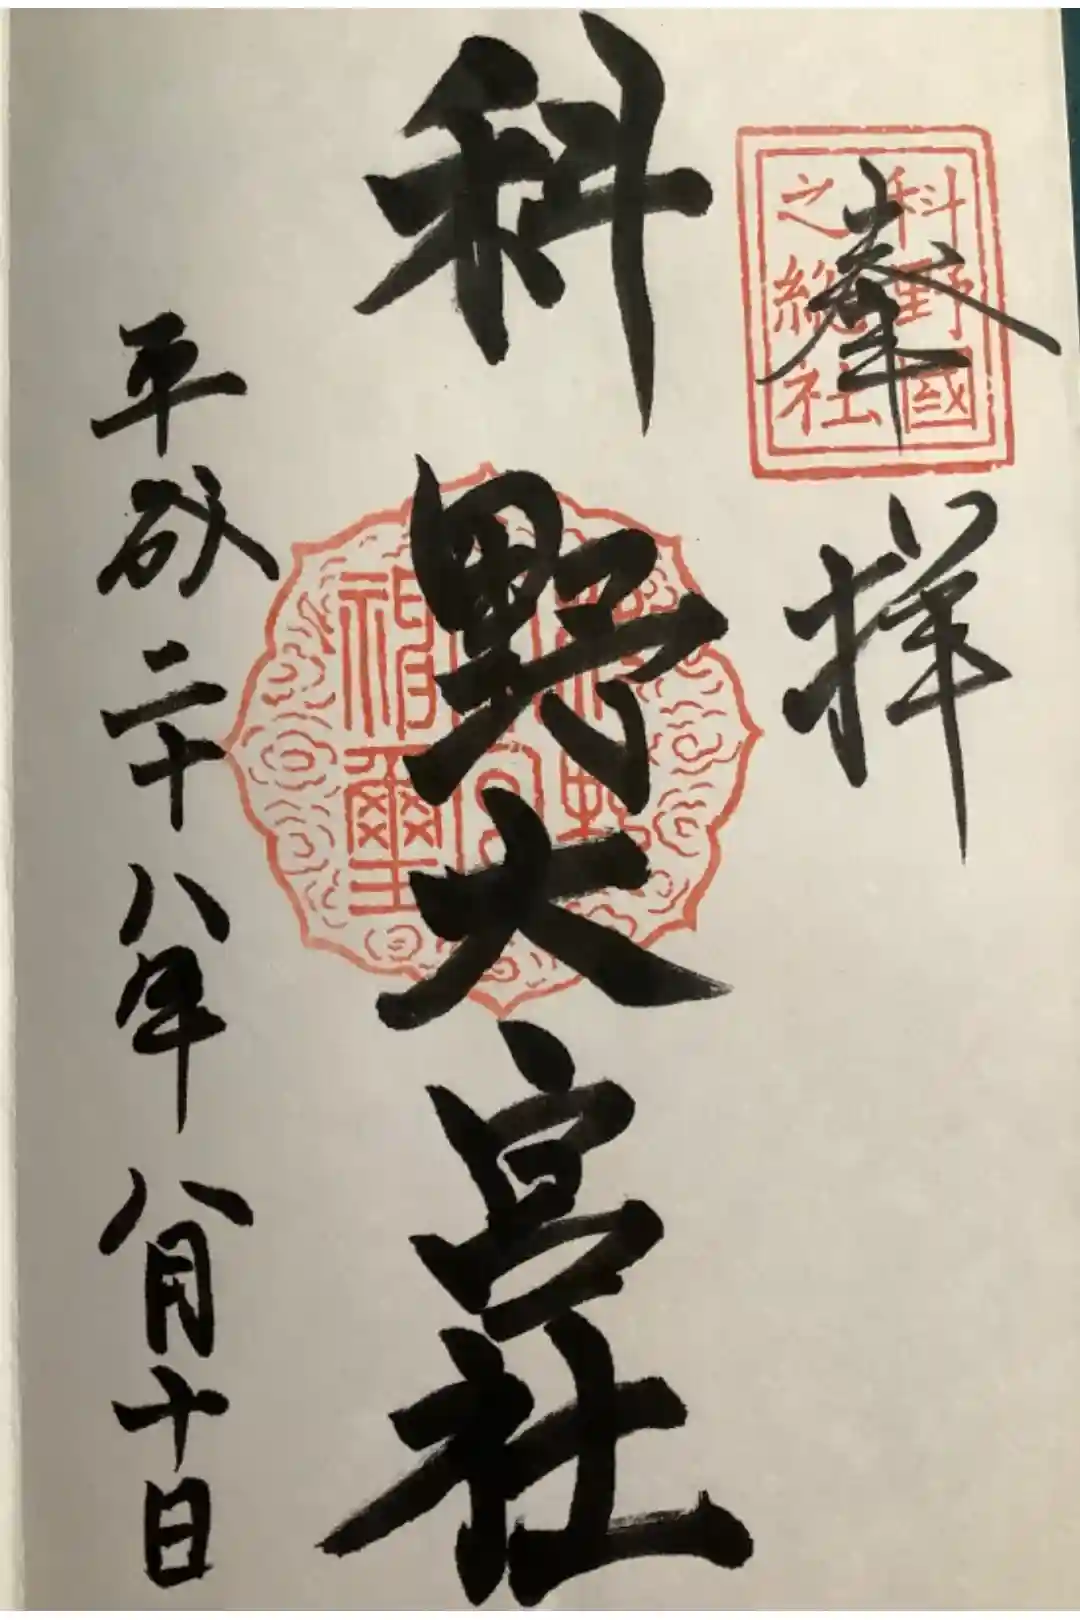 奉拝
科野國
之總社
科野大宮社
平成二十八年八月十日